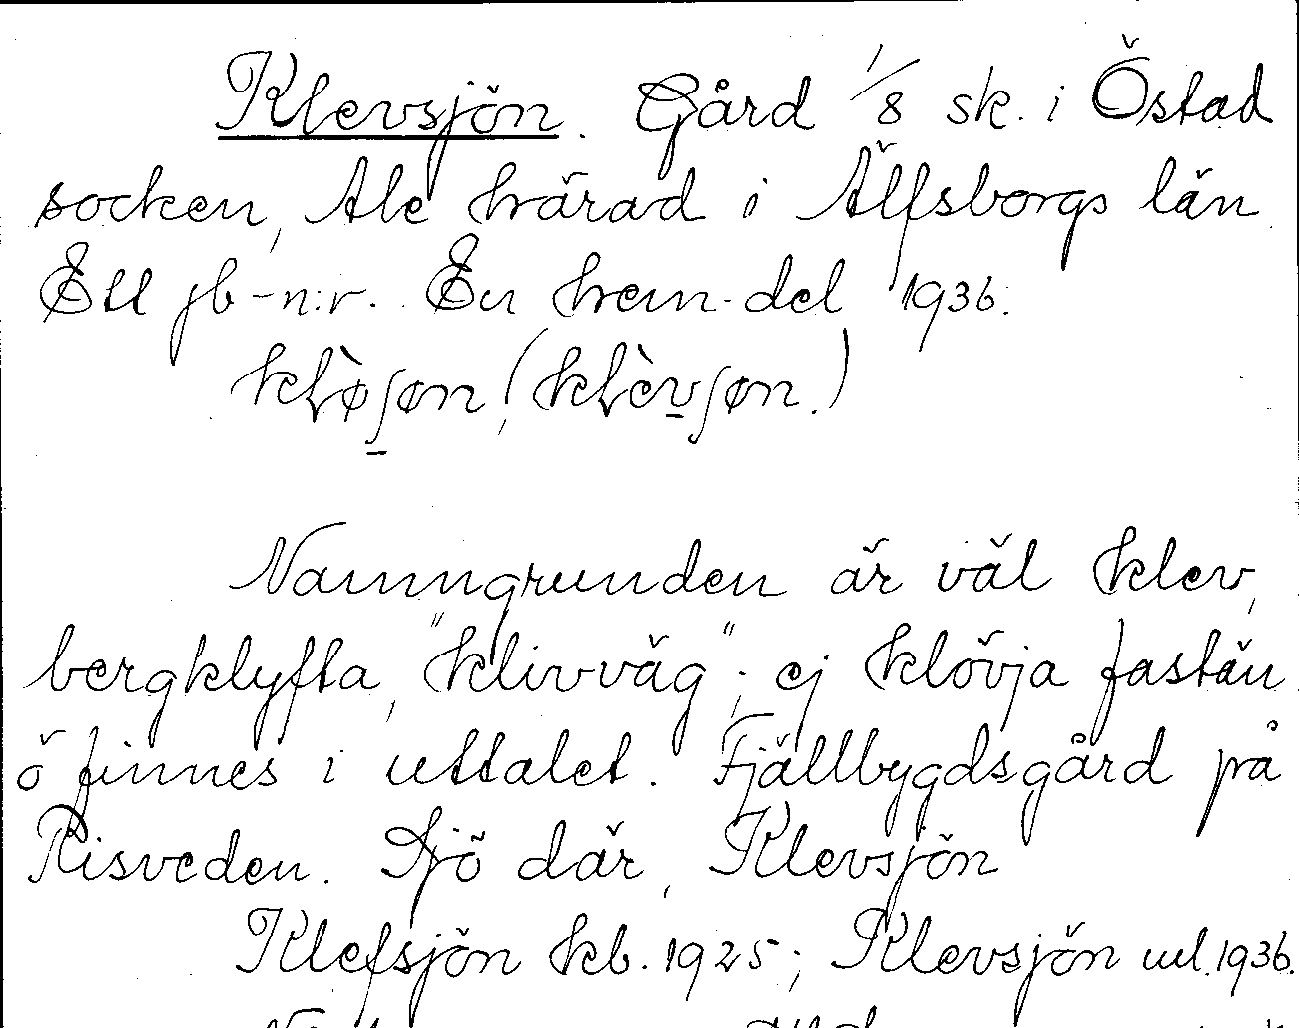 Klevsjön. Gård 1/8 sk. i Östad
socken, Ale härad i Älfsborgs län
Ett jb-n:r. En hem.del 1936.
Namngrunden är väl klev,
bergklyfta, "klivväg"; ej klövja fastän
ö finnes i uttalet. Fjällbygdsgård på
Risveden. Sjö där, Klevsjön
Klefsjön kb. 1925; Klevsjön uul. 1936.